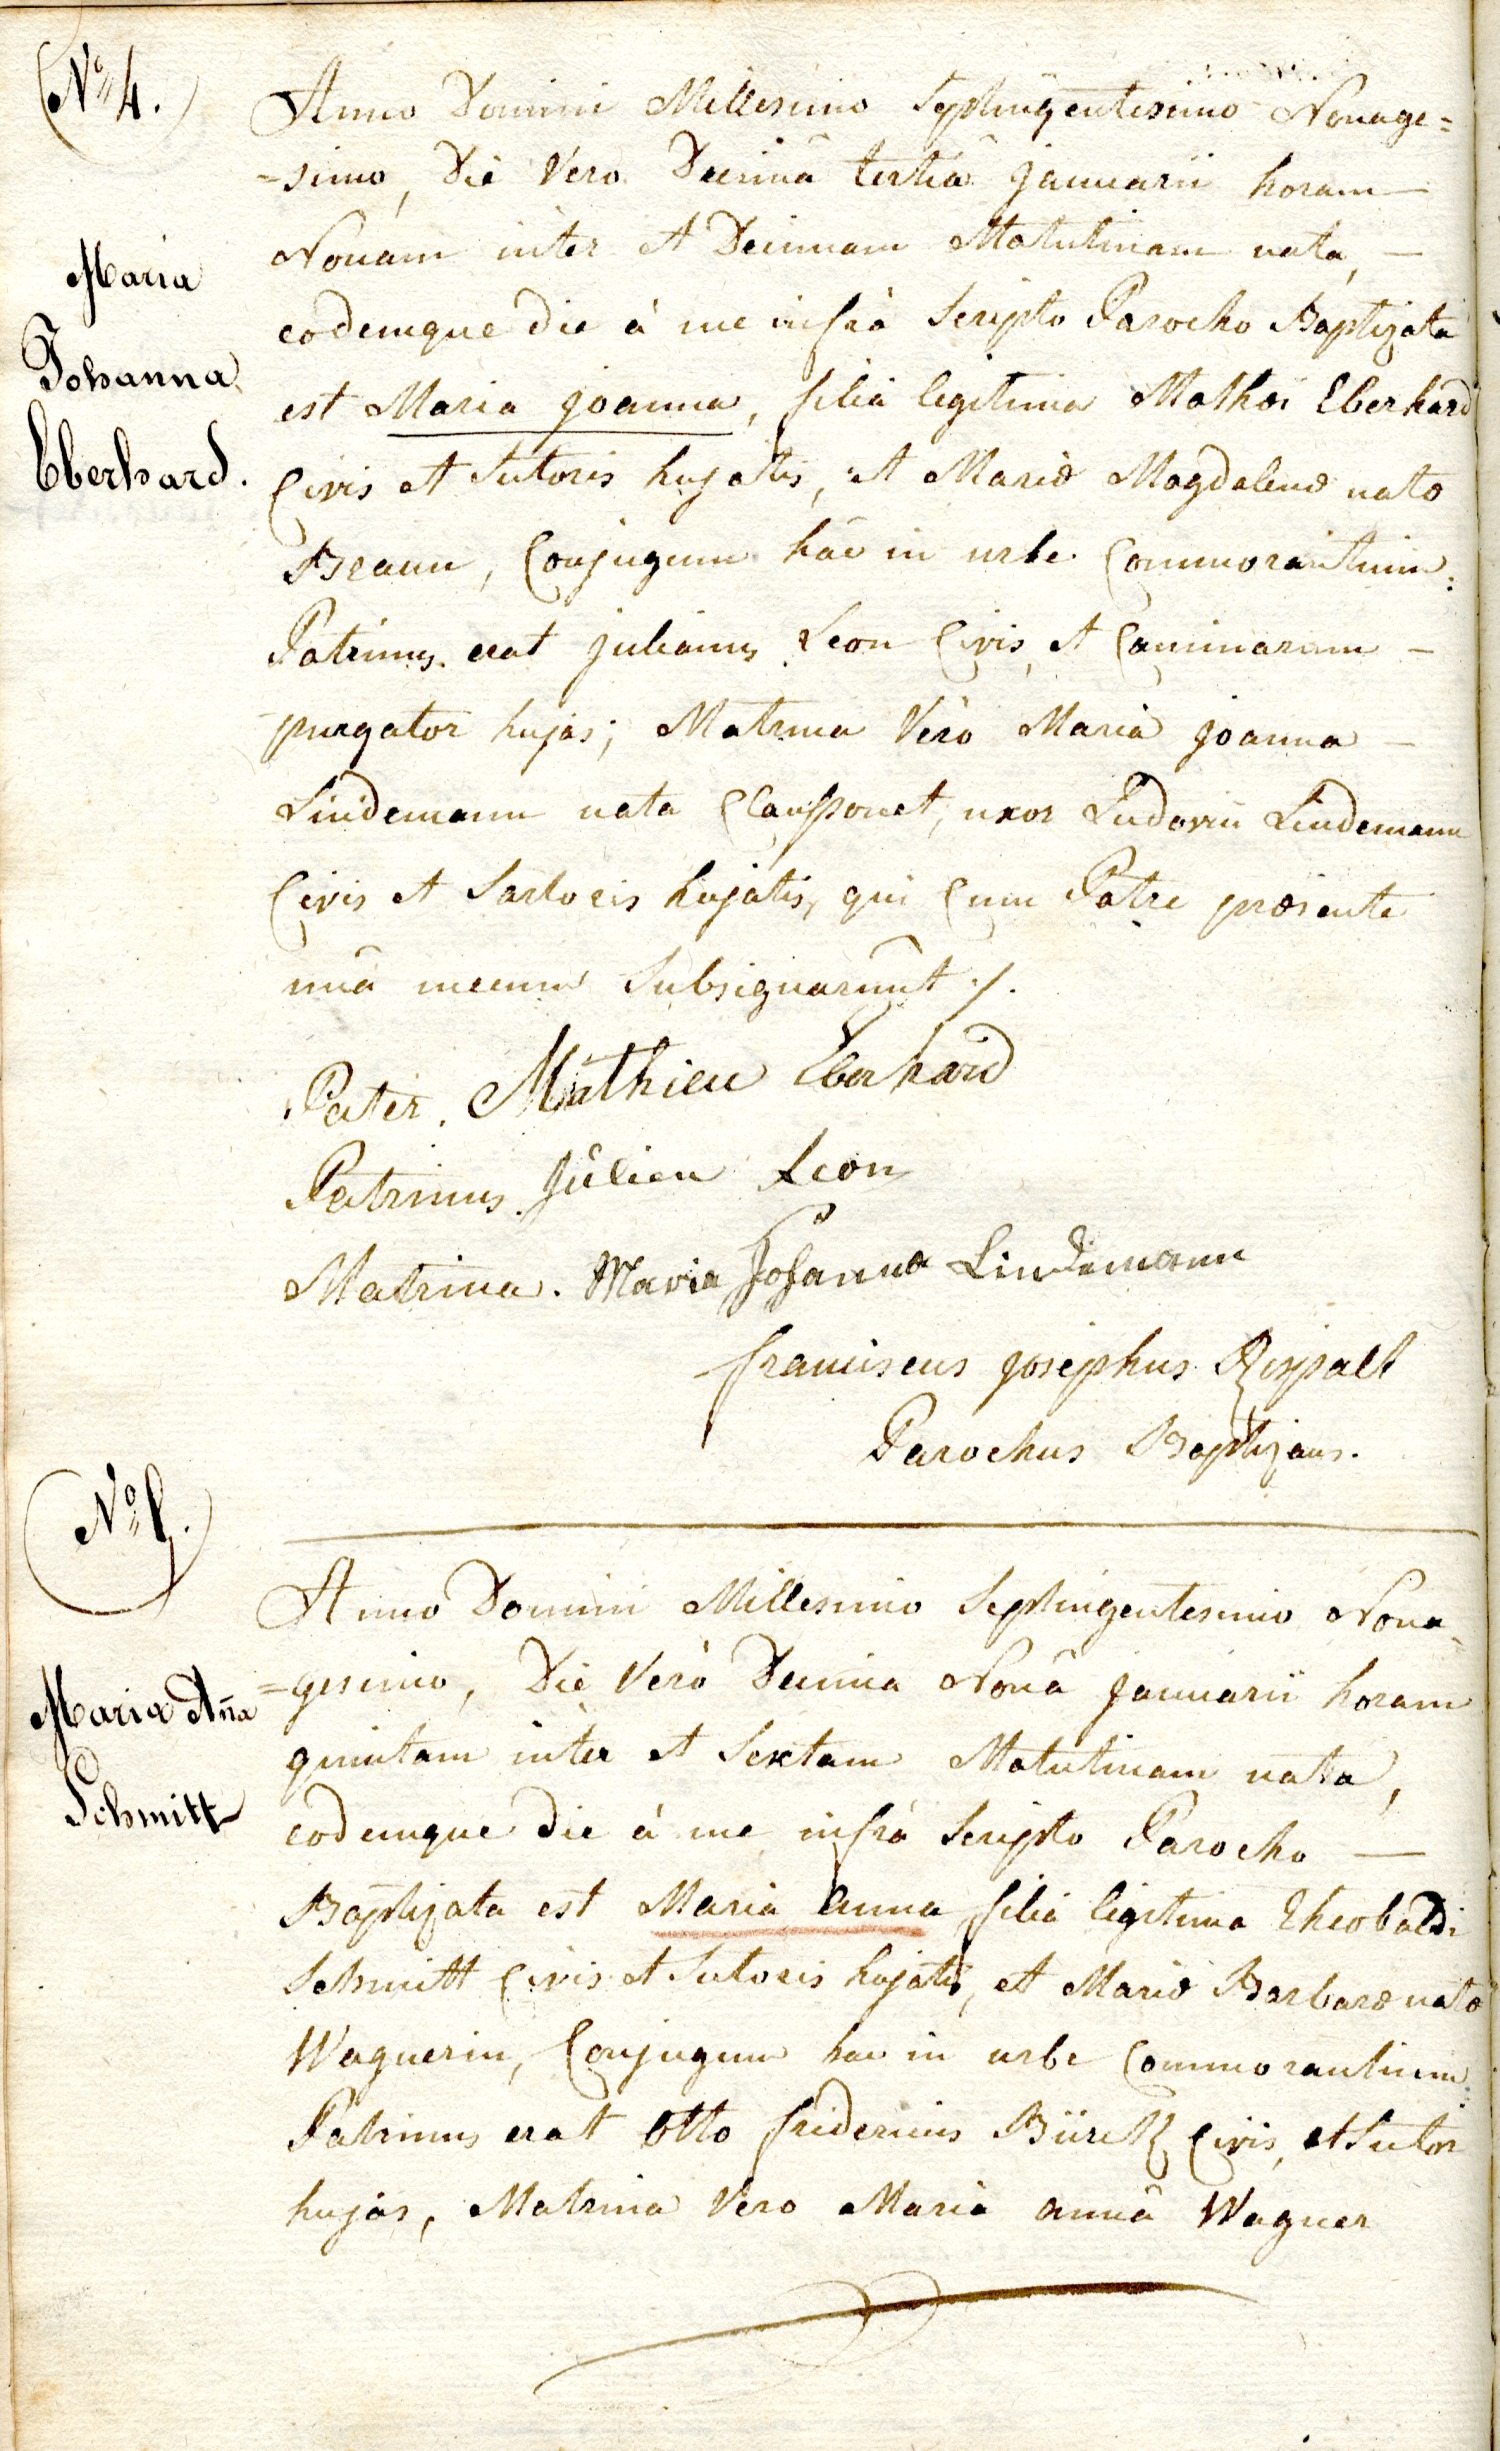 (No 4.)
Anno Domini Millesimo Septingentesimo Nonage=
=simo, Die Vero Decimâ tertiâ januarii horam —
Nonam inter et Decimam Matutinam nata, —
eodemque die à me infrà Scripto Parocho Baptizata
est Maria joanna, filia legitima Mathæi Eberhard
Civis et Sutoris hujatis, et Mariæ Magdalenæ natæ
Braun, Conjugum hâc in urbe Commorantium:
Patrinus erat julianus Leon Civis, et Caminarum —
purgator hujas; Matrina Verò Maria joanna —
Lindemann nata, uxor Ludovici Lindemann
Civis et Sartoris hujatis, qui Cum Patre præsente
unà mecum Subsignarunt ./.
Maria
Johanna
Eberhard.
Pater. Mathieu Eberhard
Patrinus. Julien Leon
Matrina. Maria Johanna Lindemann
franciscus josephus Rispalt
Parochus Baptizans.
No 5.
Anno Domini Millesimo Septingentesimo Nona=
=gesimo, Die Verò Decima Nonâ januarii horam
quintam inter et Sextam Matutinam nata,
eodemque die à me infrà Scripto Parocho —
Baptizata est Maria anna filia legitima Theobaldi
Schmitt Civis et Sutoris hujatis, et Mariæ Barbaræ natæ
Wagnerin, Conjugum hac in urbe Commorantium:
Patrinus erat Otto fridericus Civis, et Sutor
hujas, Matrina Vero Maria anna Wagner
Maria Aña
Schmitt